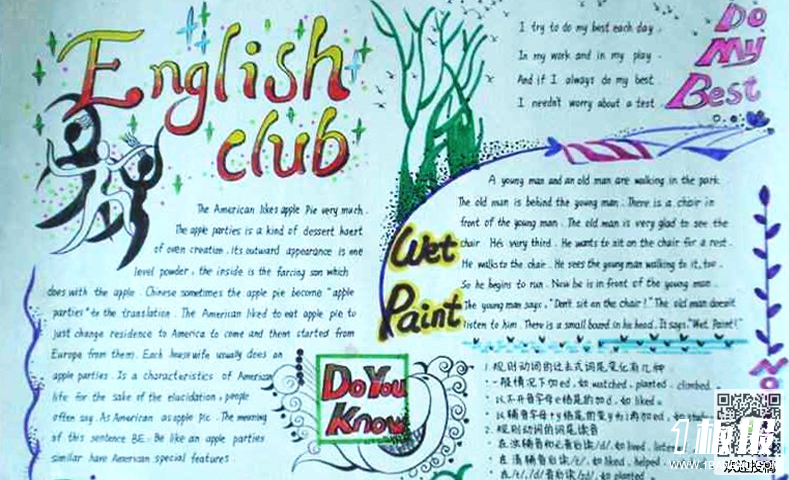 English
club
The American likes apple Pie very much.
The apple parties is a kind of dessert haert
of oven creation. its outward appearance is one
level powder, the inside is the farcing son which
does with the apple. Chinese sometimes the apple pie become "apple
parties" to the translation. The American liked to eat apple pie to
just change residence to America to come and them started from
Europe from them. Each housewife usually does an
apple parties. Is a characteristics of American
life for the sake of the elucidation, people
often say. As American as apple pic. The meaning
of this sentence BE: Be like an apple parties
similar have American special features.
Do
My
Best
I try to do my best each day.
In my work and in my play.
And if I always do my best.
I needn't worry about a test.
Wet
Paint
A young man and an old man are walking in the park.
The old man is behind the young man. There is a chair in
front of the young man. The old man is very glad to see the
chair. He's very third. He wants to sit on the chair for a rest.
He walks to the chair. He sees the young man walking to it, too.
So he begins to run. Now be is in front of the young man.
The young man says, "Don't sit on the chair!" The old man doesn't
listen to him. There is a small board in his head. It says, "Wet Paint!"
Do You
Know
1. 规则动词的过去式词尾变化有几种
一般情况下加ed, 如 watched, planted, climbed.
以不发音字母e结尾的加d, 如 liked.
以辅音字母+y结尾的变y为i再加ed, 如
2. 规则动词的词尾读音
在浊辅音和元音后读/d/, 如 lived,
在清辅音后读/t/, 如 liked, helped
在/t/, /d/音后读/id/, 如 planted
No
1板报